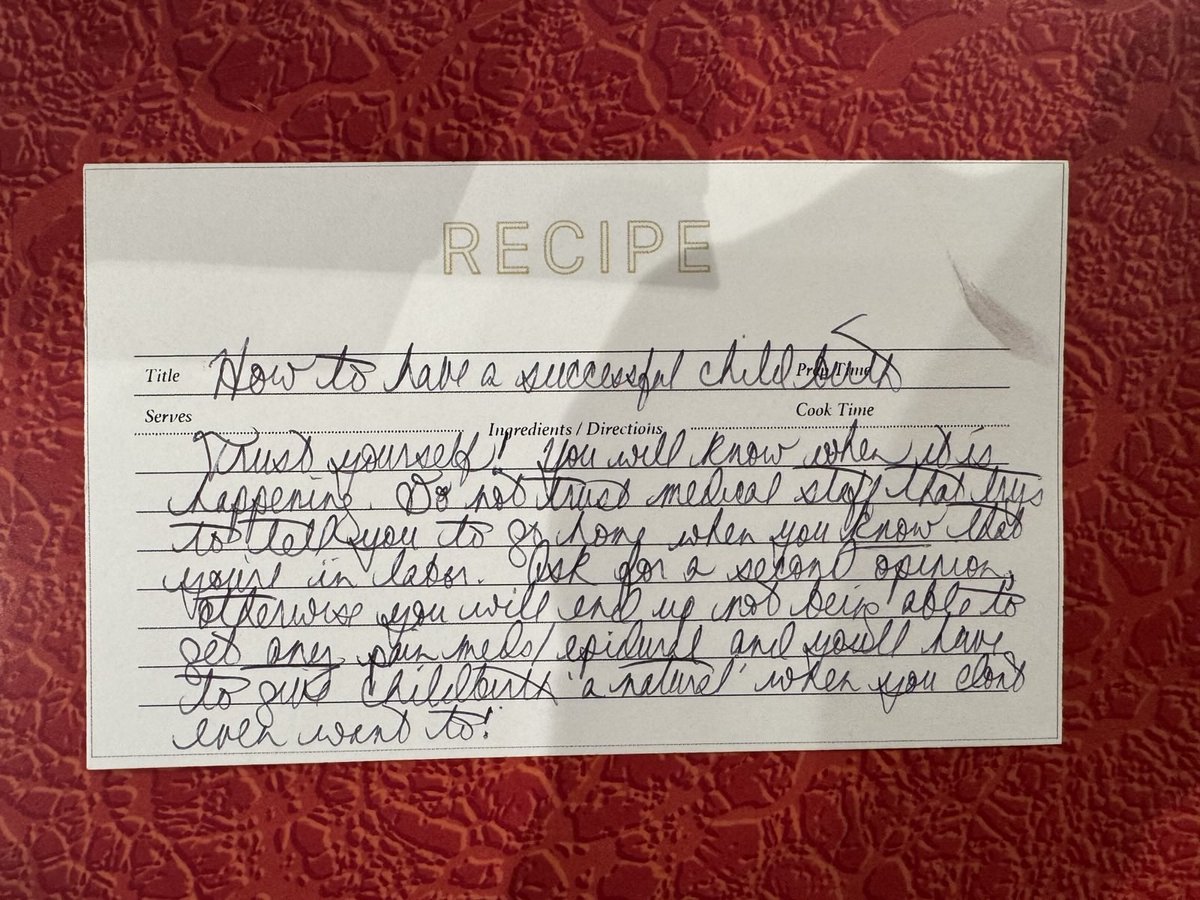 RECIPE
Title How to have a successful child birth Prep Time
Serves Cook Time
Ingredients / Directions
Trust yourself! You will know when it is
happening. Do not trust medical staff that trys
to tell you to go home when you know that
you're in labor. Ask for a second opinion,
otherwise you will end up not being able to
get any pain meds/epidural and you'll have
to give childbirth "a natural" when you dont
even want to!